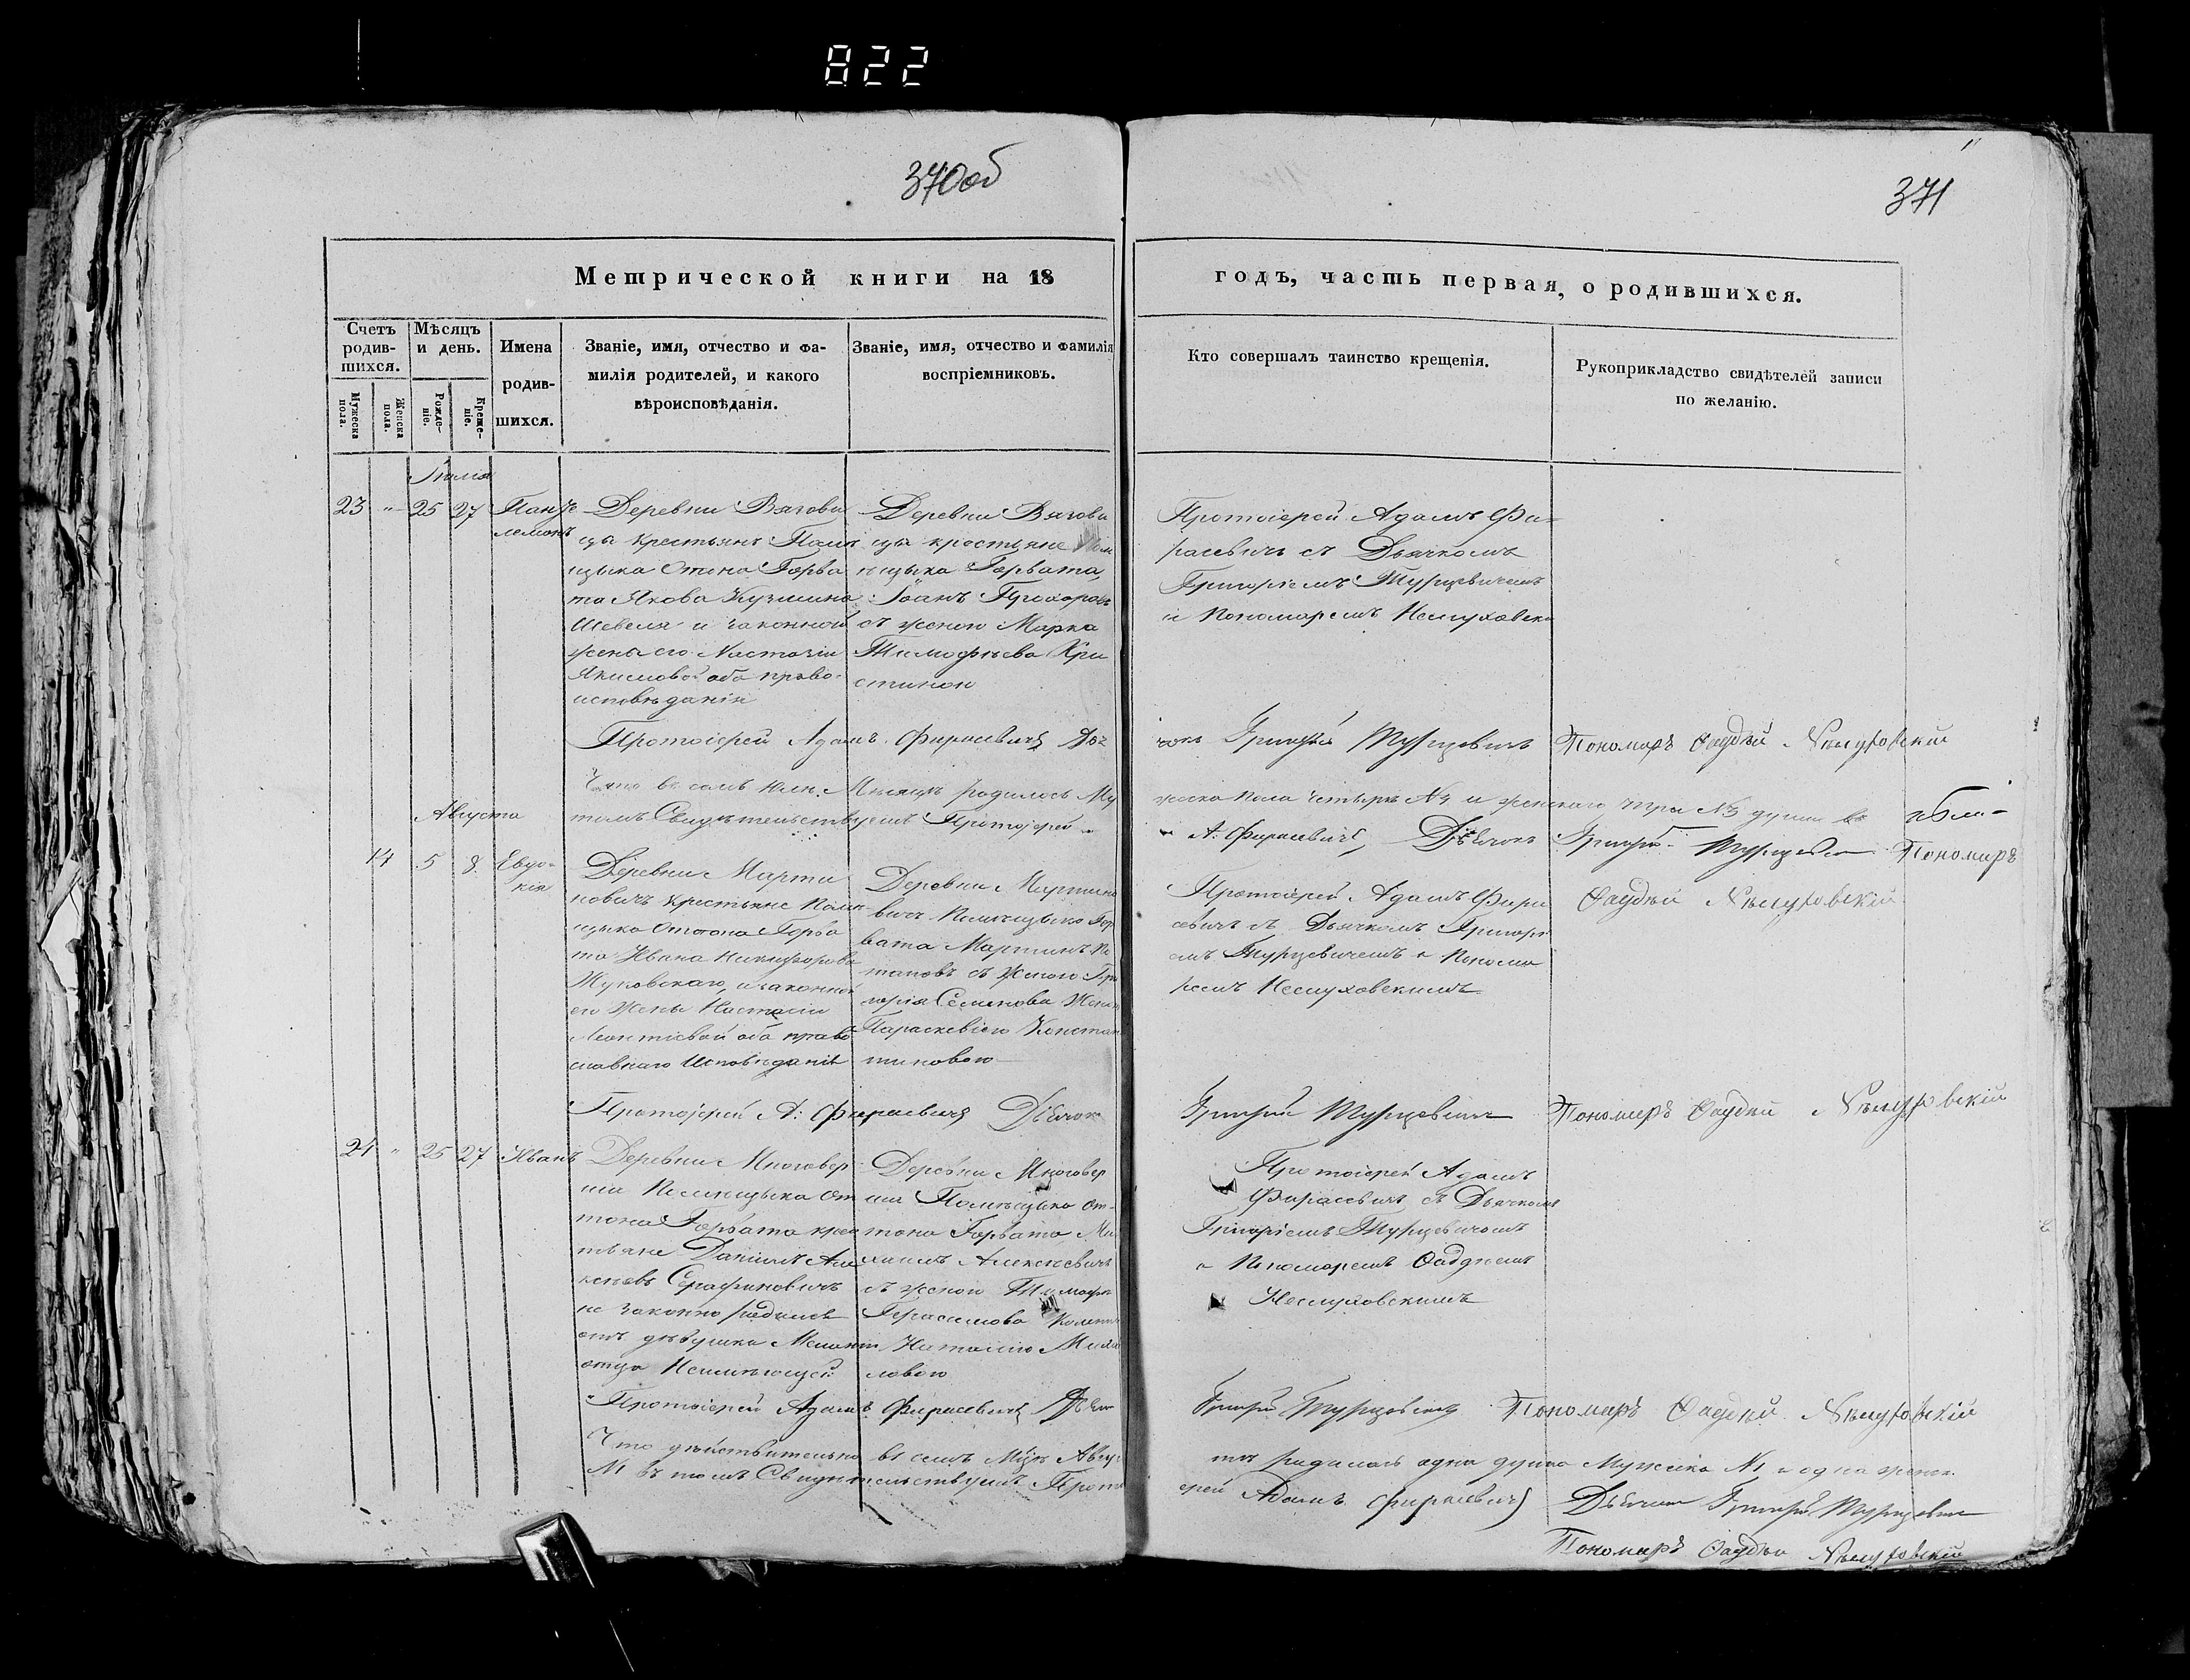 822
370об
371
Метрической книги на 18
годъ, часть первая, о родившихся.
Счетъ родив-шихся.
Мѣсяцъ и день.
Имена родив-шихся.
Званіе, имя, отчество и фа-
милія родителей, и какого
вѣроисповѣданія.
Званіе, имя, отчество и фамилія
воспріемниковъ.
Кто совершалъ таинство крещенія.
Рукоприкладство свидѣтелей записи
по желанію.
Мужеска пола.
Женска пола.
Рожде-ніе.
Креще-ніе.
Іюлія
23 " 25 27
Панте
лемонъ
Деревни Вягови
ца крестьянъ Помѣ
щыка Отона Горва
та Якова Кузмина
Шевеля и законной
жены его Настасіи
Якимовой оба право-
исповѣданія
Деревни Вягови
ца крестьяне Пом
ѣщыка Горвата,
Іоанъ Прохоровъ
съ женою Марка
Тимофѣева Хри
стиною
Протоіерей Адамъ Фи-
расевичъ съ Дьячкомъ
Григоріемъ Турцевичемъ
и Пономаремъ Неслуховск
Протоіерей Адамъ Фирасевичъ Дья
чокъ Григорій Турцевичъ Пономарь Фаддѣй Нѣслуховскій
Что въ семъ Іюлѣ Мѣсяцѣ родилось Му
жеска пола четыре №4 и женскаго три №3 души въ
томъ Свидѣтельствуемъ Протоіерей
А. Фирасевичъ, Дьячокъ Григорій Турцевичъ Пономарь
Фаддѣй Нѣслуховскій
Августа
14 5 8 Евдо-
кія
Деревни Марти
новичъ крестьяне Помѣ
щыка Оттона Горва
та Ивана Никифорова
Жуковскаго, и законной
его Жены Настасіи
Леонтіевой оба право
славнаго Исповѣданія
Деревни Мартино
вичъ Помѣщыка Гор
вата Мартинъ По
таповъ съ Женою Гри
горія Семенова Жен
Параскевіею Констан
тиновою
Протоіерей Адамъ Фира
севичъ съ Дьячкомъ Григорі
емъ Турцевичемъ и Понома
ремъ Неслуховскимъ
Протоіерей А: Фирасевичъ Дьячок
Григорій Турцевичъ Пономарь Фаддѣй Нѣслуховскій
24 " 25 27 Иванъ
Деревни Многовер
ша Помѣщыка От
тона Горвата крес
тьяне Даніилъ Але
ксѣевъ Серафиновичъ
не законно родился
отъ дѣвушки
отца Неимѣющей
Деревни Многовер
ша Помѣщыка От-
тона Горвата Ми
хаилъ Алексѣевичъ
съ женою Тимофѣ
Герасимова
Наталію
ловою
Протоіерей Адамъ
Фирасевичъ съ Дьячкомъ
Григоріемъ Турцевичемъ
и Пономаремъ Фаддѣемъ
Неслуховскимъ
Протоіерей Адамъ Фирасевичъ Дьячо
Григорій Турцевичъ Пономарь Фаддѣй Нѣслуховскій
Что дѣйствительно въ семъ Мцѣ Авгус
тѣ родилась одна душа Мужеска №1 и одна женск.
№1 въ томъ Свидѣтельствуемъ Прото
ерей Адамъ Фирасевичъ Дьячокъ Григорій Турцевичъ
Пономарь Фаддѣй Нѣслуховскій